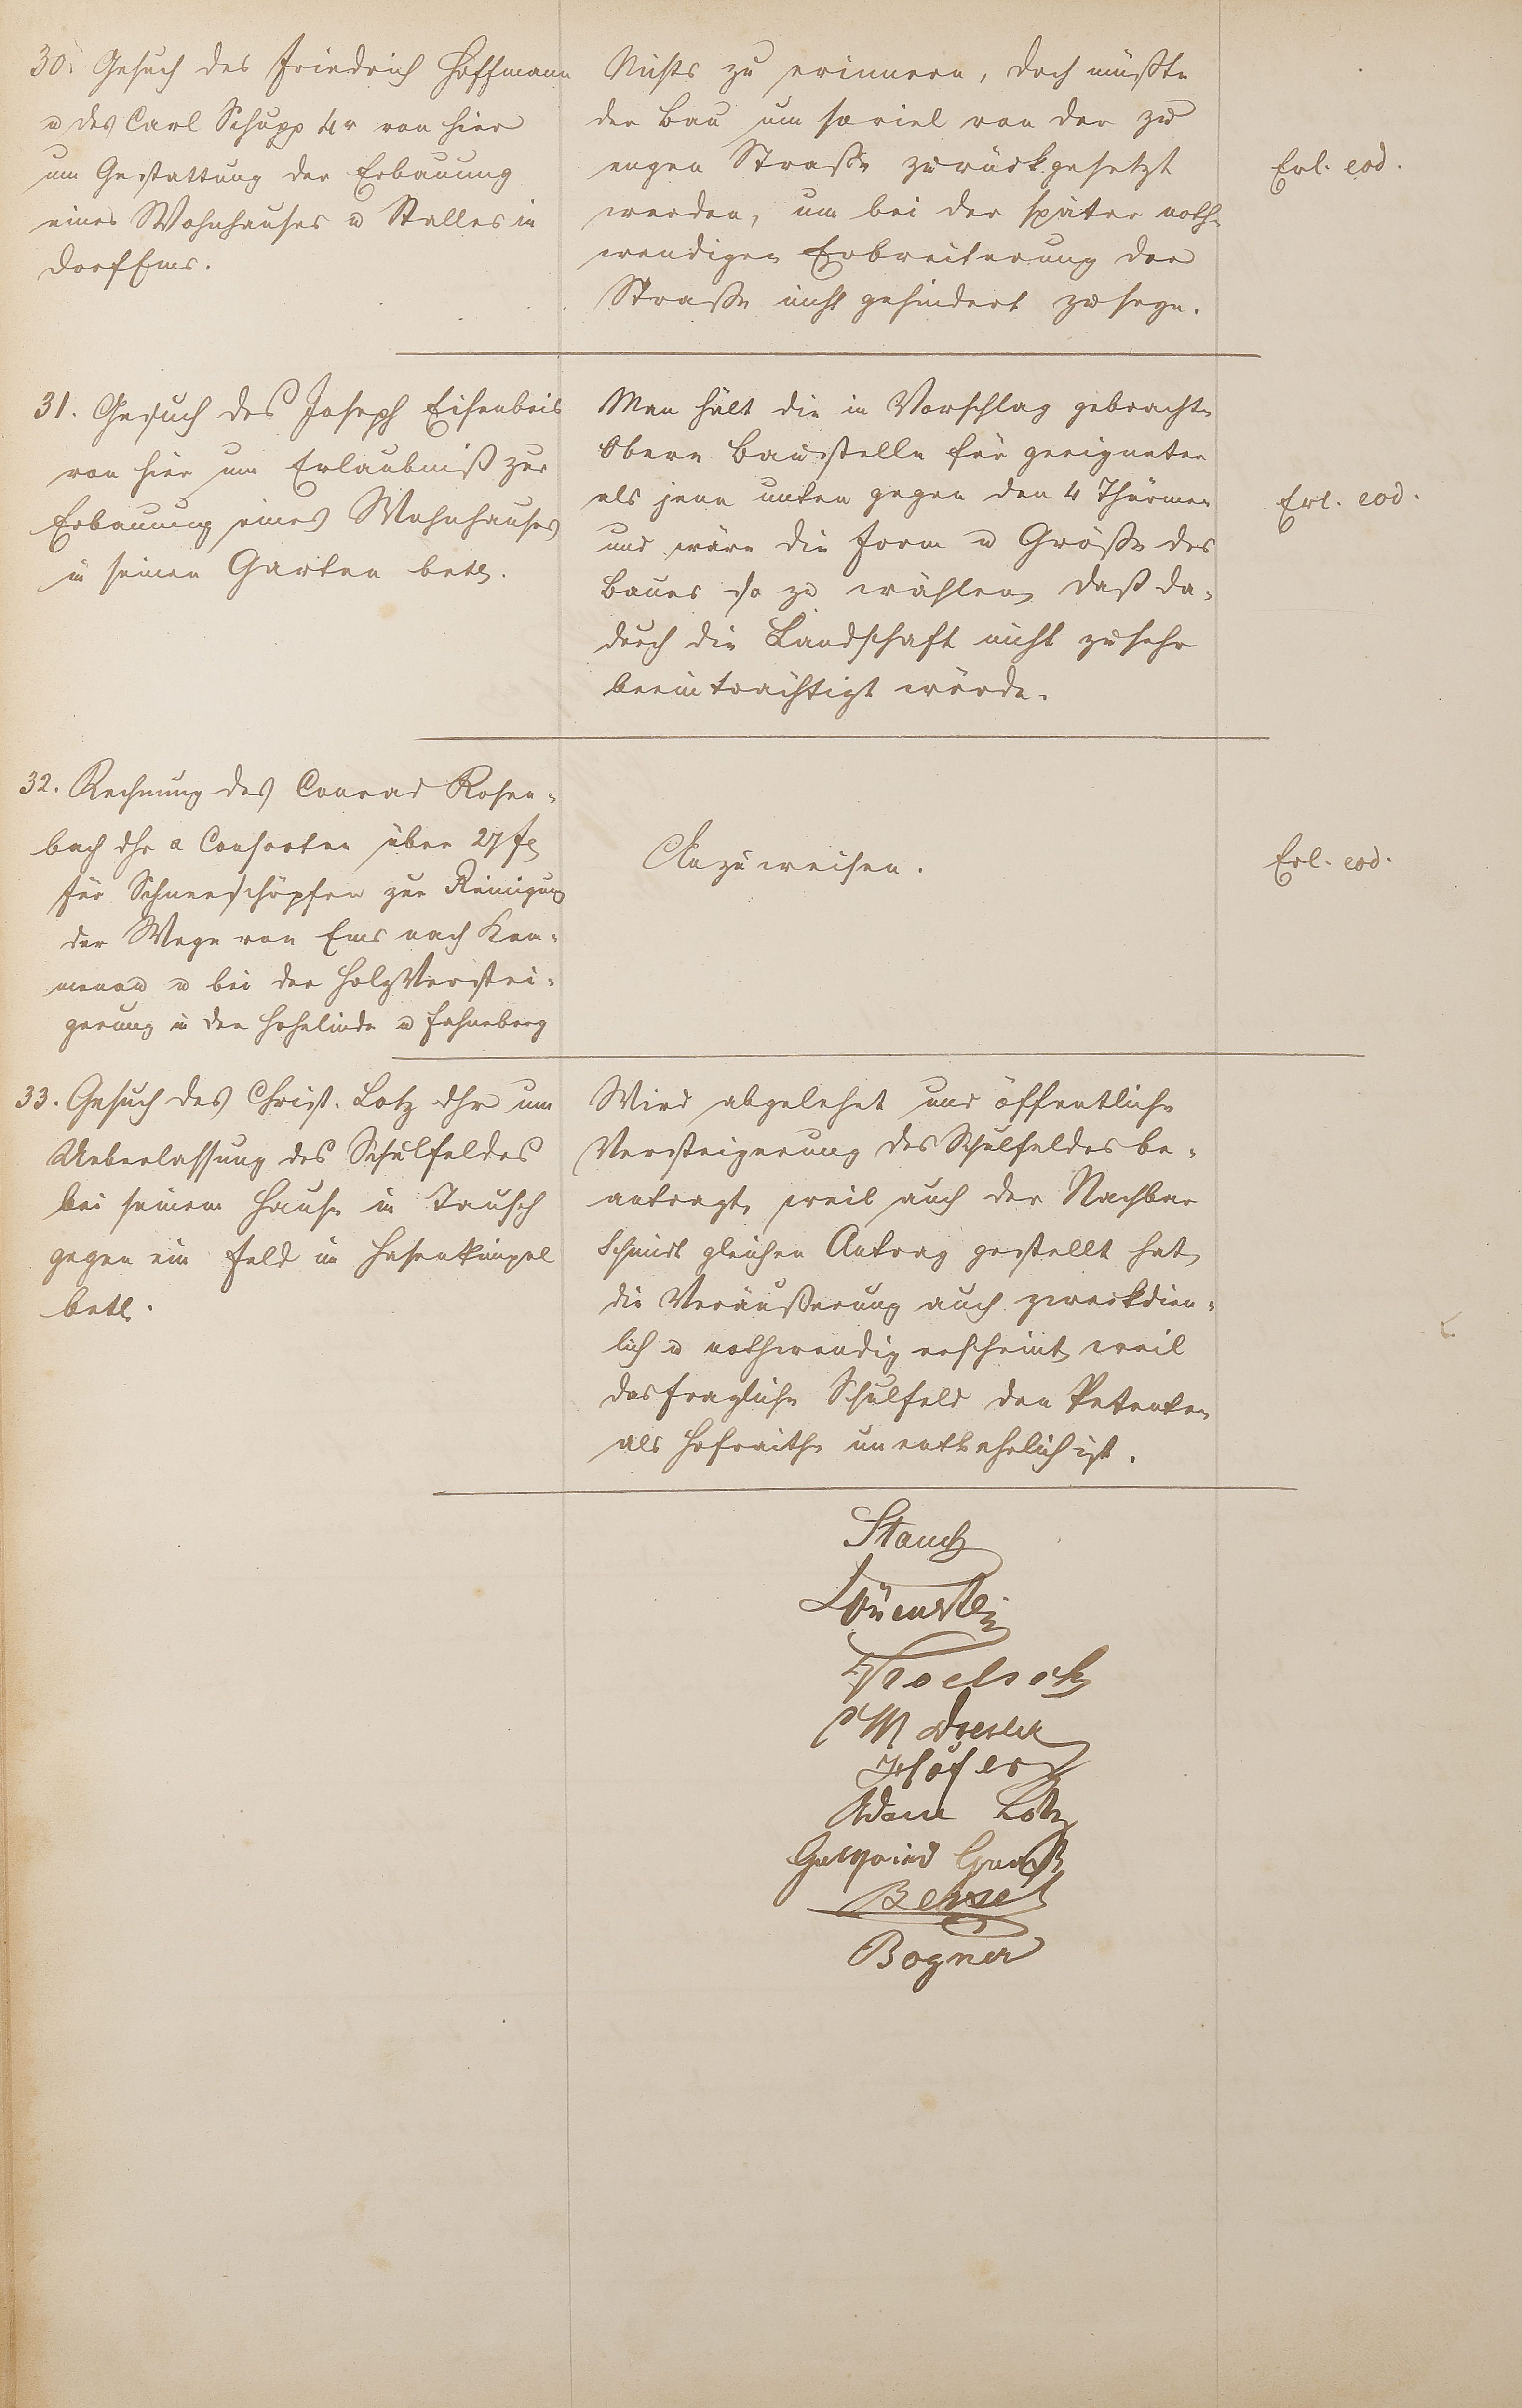 30. Gesuch des Friedrich Hoffmann
u des Carl Schupp 4r von hier
um Gestattung der Erbauung
eines Wohnhauses u Stalles in
Dorf Ems.
Nichts zu erinnern, doch müßte
der Bau um soviel von der zu
engen Straße zurückgesetzt
werden, um bei der später noth-
wendigen Erbreiterung der
Straße nicht gehindert zu seyn.
Erl. eod.
31. Gesuch des Joseph Eisenbeis
von hier um Erlaubniß zur
Erbauung eines Wohnhauses
in seinen Garten betr.
Man hält die in Vorschlag gebrachte
obere Baustelle für geeigneter
als jene unten gegen den 4 Thürmen
und wäre die Form u Größe des
Baues so zu wählen, daß da-
durch die Landschaft nicht zu sehr
beeinträchtigt würde.
Erl. eod.
32. Rechnung des Conrad Rosen-
bach dhr a Consorten über 27 fl
für Schneeschöpfen zur Reinigung
der Wege von Ems nach Kem-
menau u bei der Holzverstei-
gerung in der Hohelinde u Fahneberg
Anzuweisen.
Erl. eod.
33. Gesuch des Christ. Lotz dhr um
Ueberlassung des Schulfeldes
bei seinem Hause in Tausch
gegen ein Feld im Hasenkümpel
betr.
Wird abgelehnt und öffentliche
Versteigerung des Schulfeldes be-
antragt, weil auch der Nachbar
Schmidt gleichen Antrag gestellt hat,
die Veräußerung auch zweckdien-
lich u nothwendig erscheint, weil
das fragliche Schulfeld den Petenten
als Hofraithe unentbehrlich ist.
Stauch
Troelsch
Adam Lotz
Bogner